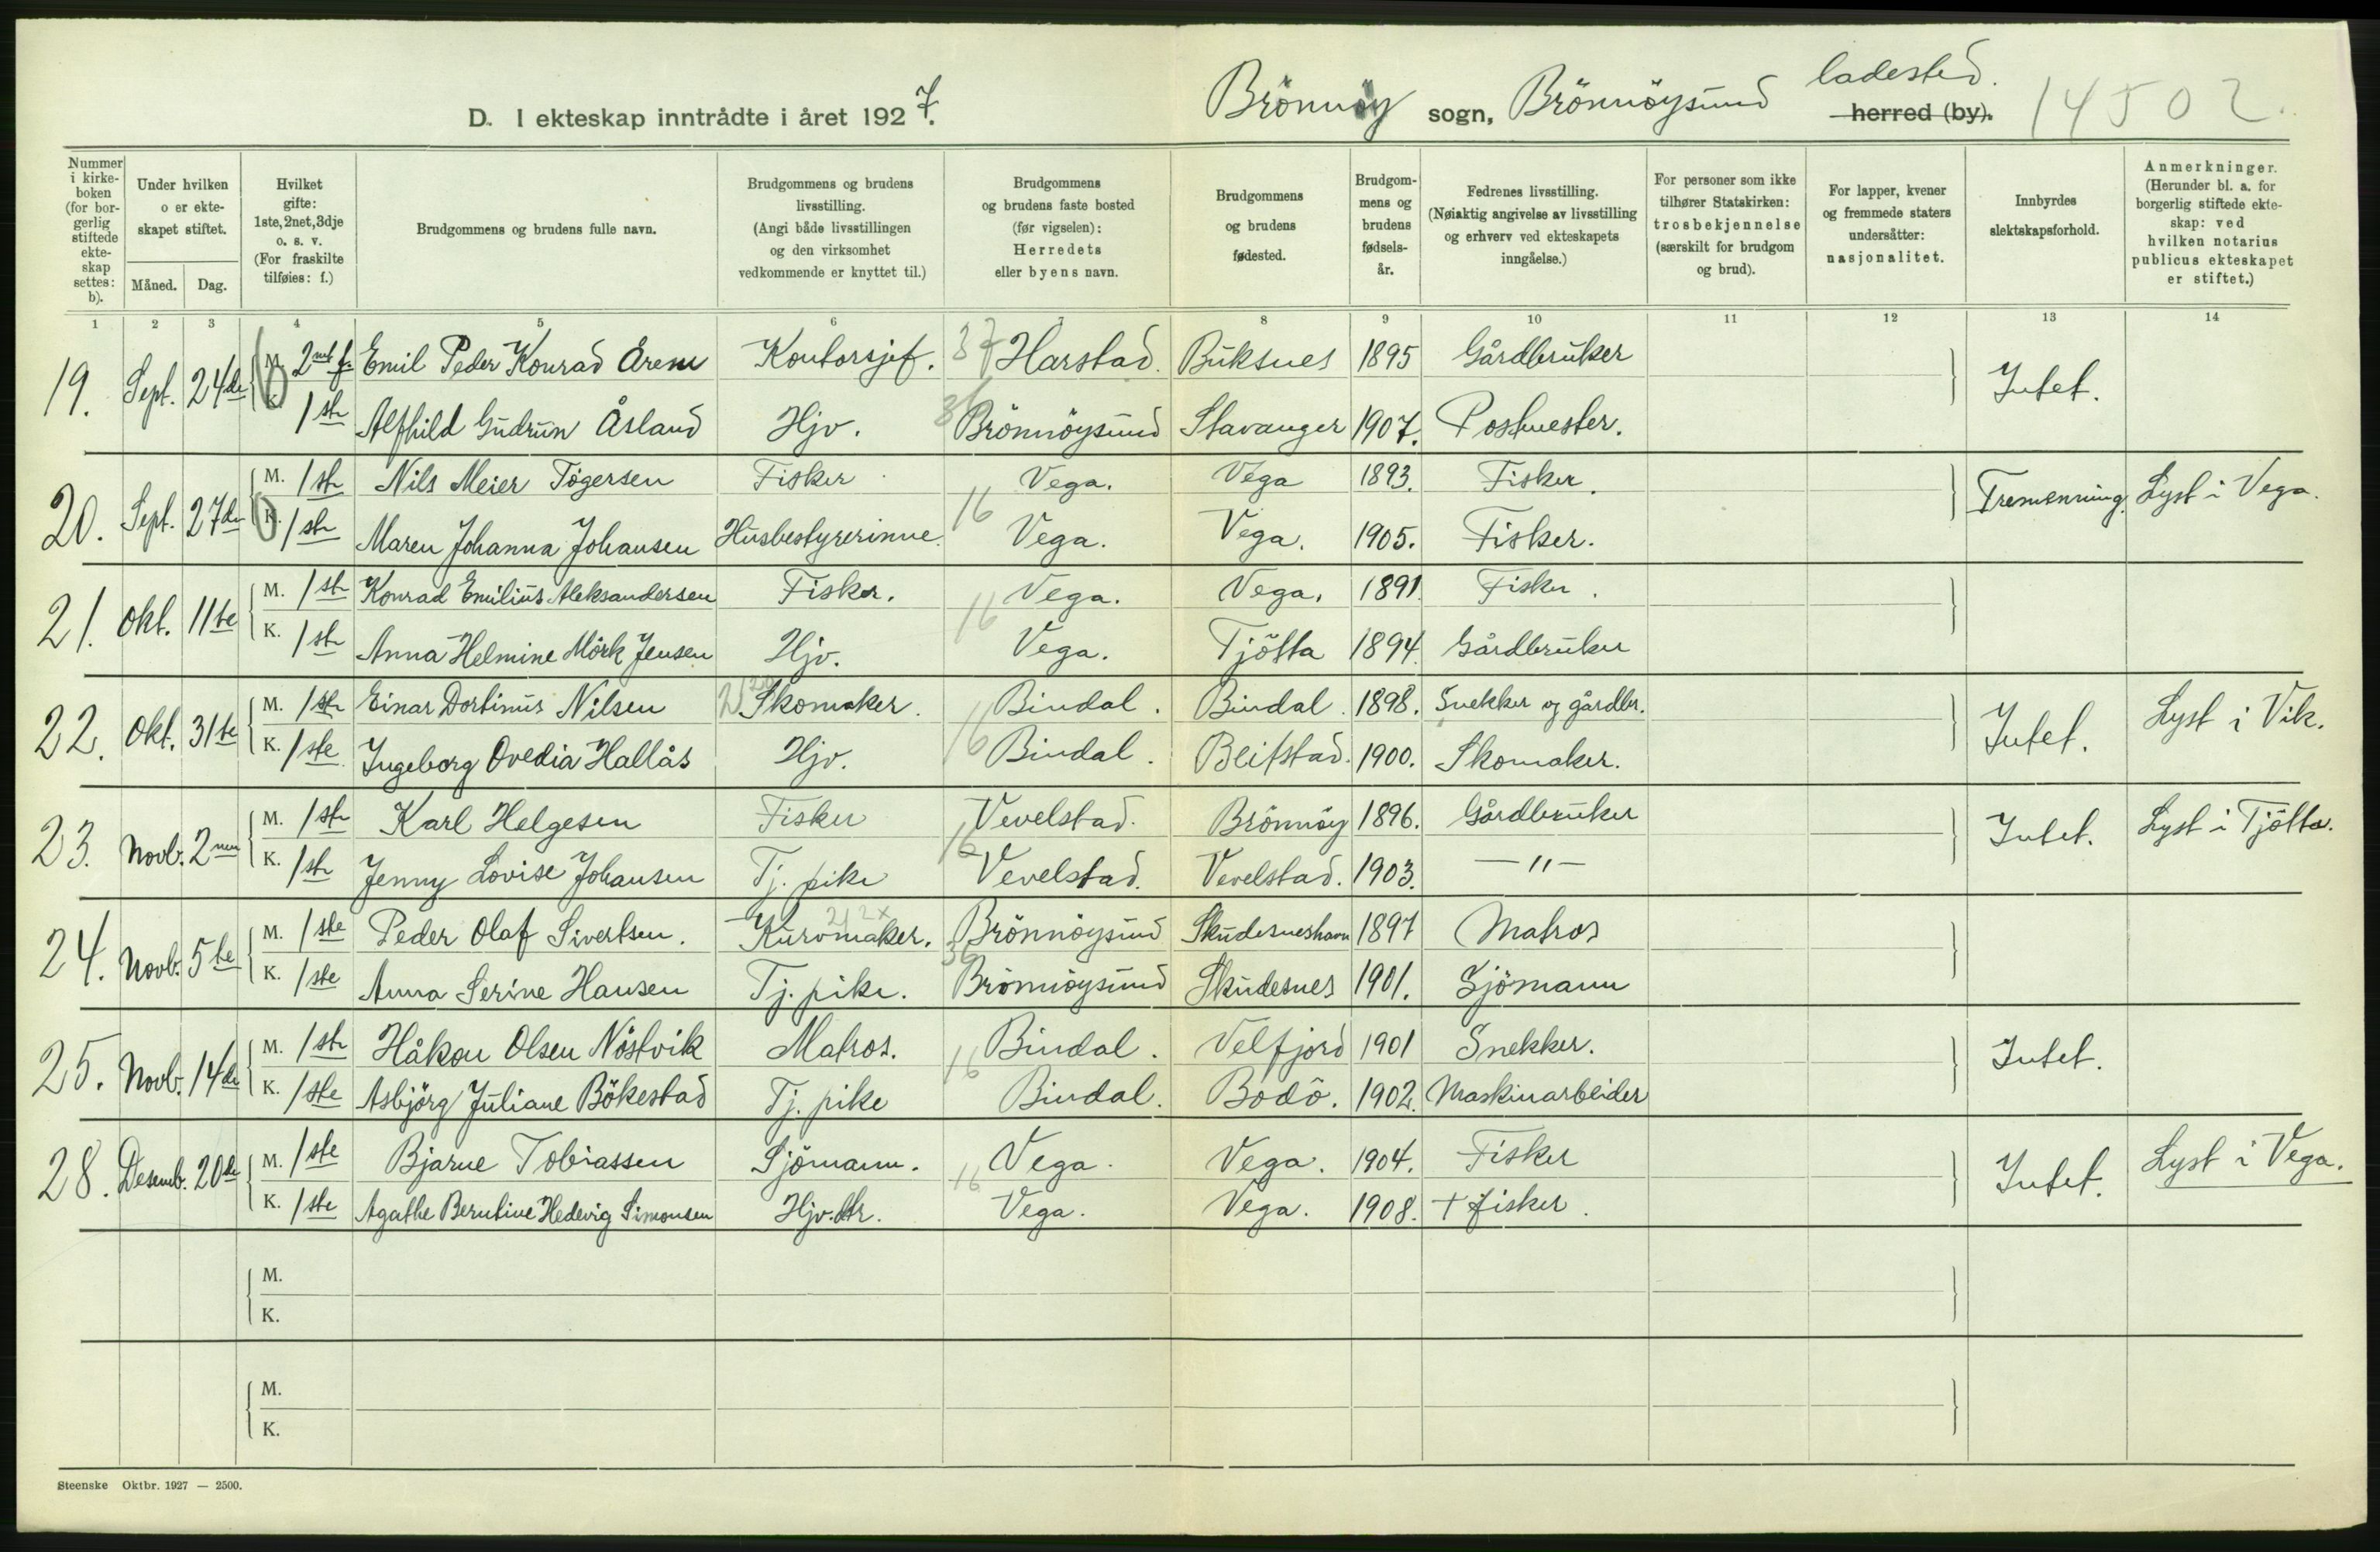 D. I ekteskap inntrådte i året 1927.
Brönnöy sogn, Brönnöysund ladested. herred (by). 14502.
Nummer i kirkeboken (for borgerlig stiftede ekteskap settes: b).
Under hvilken o er ekteskapet stiftet.
Måned. Dag.
Hvilket gifte: 1ste, 2net, 3dje o. s. v. (For fraskilte tilføies: f.)
Brudgommens og brudens fulle navn.
Brudgommens og brudens livsstilling. (Angi både livsstillingen og den virksomhet vedkommende er knyttet til.)
Brudgommens og brudens faste bosted (før vigselen): Herredets eller byens navn.
Brudgommens og brudens fødested.
Brudgommens og brudens fødselsår.
Fedrenes livsstilling. (Nøiaktig angivelse av livsstilling og erhverv ved ekteskapets inngåelse.)
For personer som ikke tilhører Statskirken: trosbekjennelse (særskilt for brudgom og brud).
For lapper, kvener og fremmede staters undersåtter: nasjonalitet.
Innbyrdes slektskapsforhold.
Anmerkninger. (Herunder bl. a. for borgerlig stiftede ekteskap: ved hvilken notarius publicus ekteskapet er stiftet.)
1 2 3 4 5 6 7 8 9 10 11 12 13 14
19. Sept. 24de M. 2net f. Emil Peder Konrad Arem Kontorsjef. 37 Harstad. Buksnes 1895 Gårdbruker Intet.
K. 1ste Alfhild Gudrun Åsland Hjv. 36 Brönnöysund Stavanger 1907. Postmester.
20. Sept. 27de M. 1ste Nils Meier Tögersen Fisker Vega. Vega 1893. Fisker. Tremenning. Lyst i Vega.
K. 1ste Maren Johanna Johansen Husbestyrerinne. 16 Vega. Vega. 1905. Fisker.
21. Okt. 11te M. 1ste Konrad Emilius Aleksandersen Fisker. Vega. Vega. 1891. Fisker.
K. 1ste Anna Helmine Mörk Jensen Hjv. 16 Vega. Tjötta 1894. Gårdbruker
22. Okt. 31te M. 1ste Einar Dortinus Nilsen Skomaker. Bindal. Bindal. 1898. Snekker og gårdbr. Intet. Lyst i Vik.
K. 1ste. Ingeborg Ovedia Hallås Hjv. 16 Bindal. Beitstad. 1900. Skomaker.
23. Novb. 2nen M. 1ste Karl Helgesen Fisker Vevelstad. Brönnöy 1896. Gårdbruker Intet. Lyst i Tjötta.
K. 1ste Jenny Lovise Johansen Tj. pike 16 Vevelstad. Vevelstad. 1903. — " —
24. Novb. 5te M. 1ste Peder Olaf Sivertsen. Kurvmaker. Brönnöysund Skudesneshavn 1897 Matros
K. 1ste Anna Serine Hansen Tj. pike. 36 Brönnöysund Skudesnes 1901. Sjömann
25. Novb. 14de M. 1ste Håkon Olsen Nöstvik Matros. Bindal. Velfjord 1901 Snekker. Intet.
K. 1ste Asbjörg Juliane Bökestad Tj. pike 16 Bindal. Bodö. 1902. Maskinarbeider
28. Desemb. 20de M. 1ste Bjarne Tobiassen Sjömann. Vega. Vega. 1904. Fisker Intet. Lyst i Vega.
K. 1ste Agathe Berntine Hedevig Simonsen Hjv. dtr. 16 Vega. Vega. 1908. + fisker.
M.
K.
M.
K.
Steenske Oktbr. 1927 — 2500.